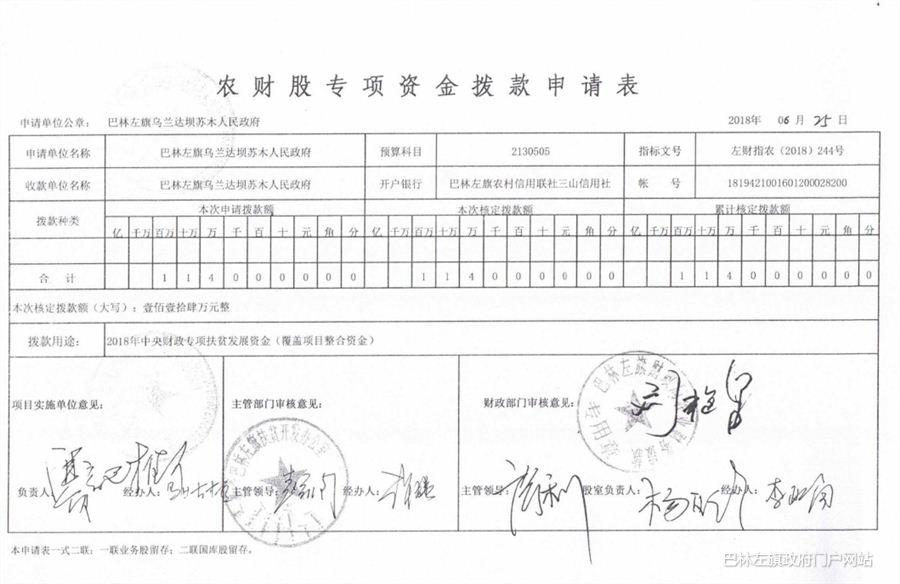 农财股专项资金拨款申请表
申请单位公章： 巴林左旗乌兰达坝苏木人民政府 2018年 06 月 25 日
申请单位名称 巴林左旗乌兰达坝苏木人民政府 预算科目 2130505 指标文号 左财指农（2018）244号
收款单位名称 巴林左旗乌兰达坝苏木人民政府 开户银行 巴林左旗农村信用联社三山信用社 帐 号 1819421001601200028200
拨款种类 本次申请拨款额 本次核定拨款额 累计核定拨款额
亿 千万 百万 十万 万 千 百 十 元 角 分 亿 千万 百万 十万 万 千 百 十 元 角 分 亿 千万 百万 十万 万 千 百 十 元 角 分
合 计 1 1 4 0 0 0 0 0 0 1 1 4 0 0 0 0 0 0 1 1 4 0 0 0 0 0 0
本次核定拨款额（大写）：壹佰壹拾肆万元整
拨款用途： 2018年中央财政专项扶贫发展资金（覆盖项目整合资金）
项目实施单位意见： 主管部门审核意见： 财政部门审核意见：
巴林左旗扶贫开发办公室
巴林左旗财政
负责人： 经办人： 主管领导： 经办人： 主管领导： 股室负责人： 经办人：
本申请表一式二联：一联业务股留存；二联国库股留存。
巴林左旗政府门户网站